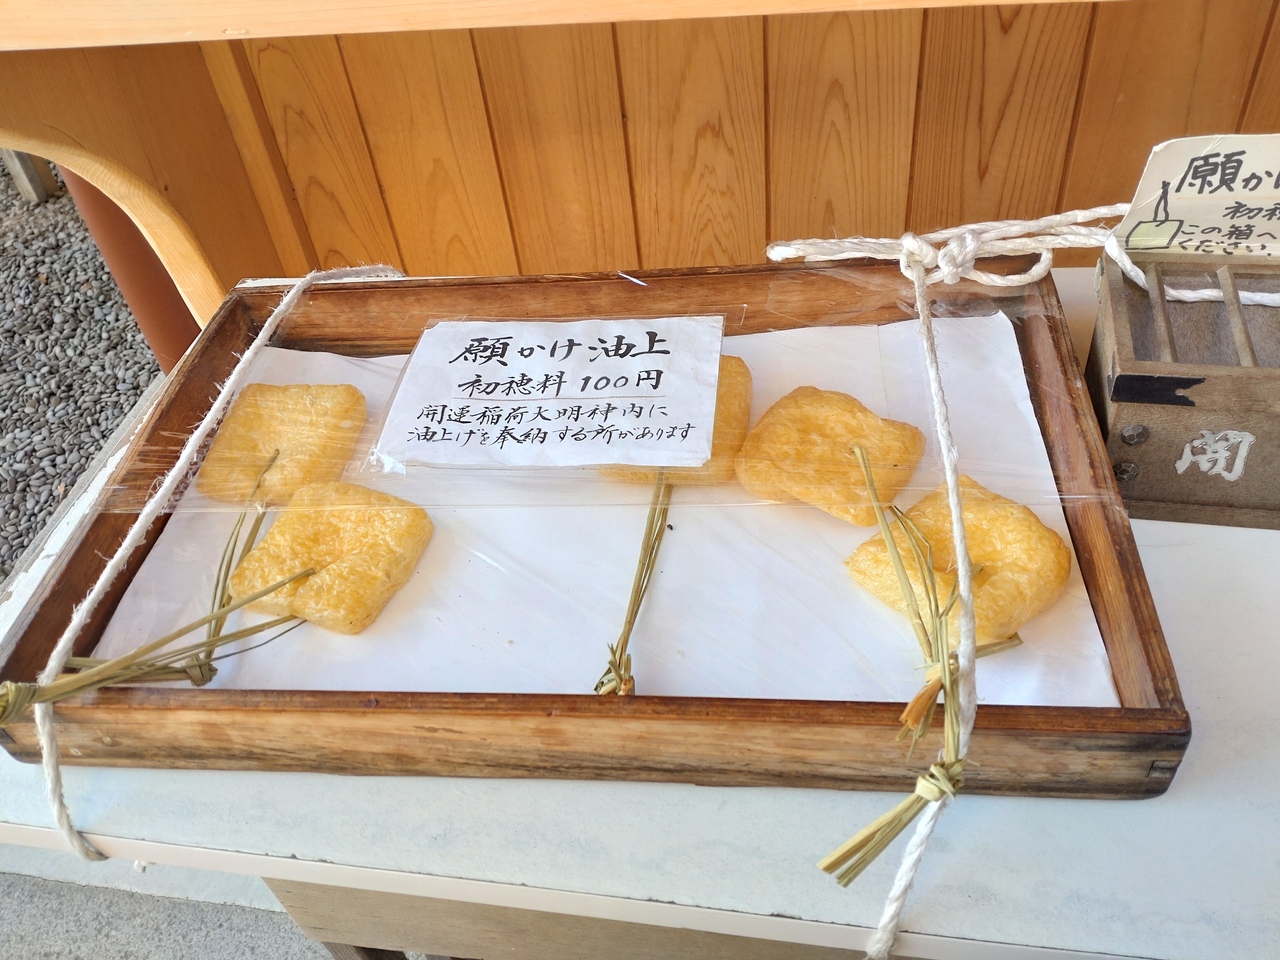 願かけ油上
初穂料 100円
開運稲荷大明神内に
油上げを奉納する所があります
願か
初
この箱へ
ください。
開